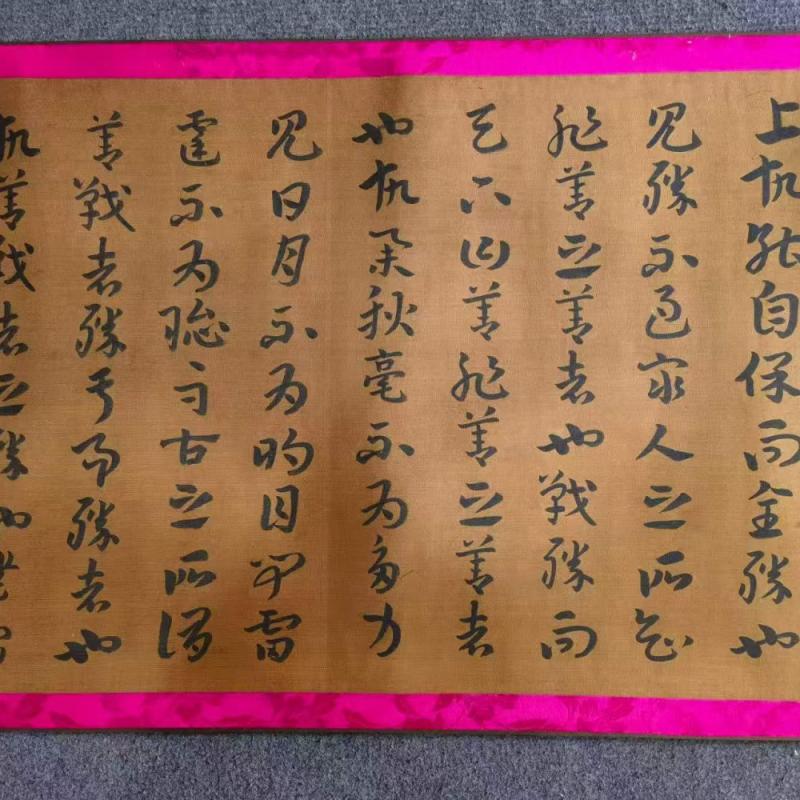 上故能自保而全勝也
見勝不過眾人之所知
非善之善者也戰勝而
天下曰善非善之善者
也故舉秋毫不為多力
見日月不為明目聞雷
霆不為聰耳古之所謂
善戰者勝于易勝者也
故善戰者之勝也無